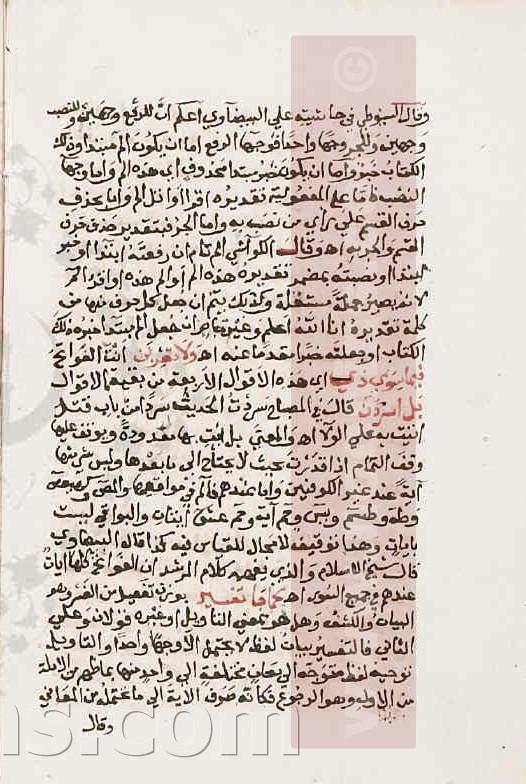 وقال السيوطي في حاشيته على البيضاوي اعلم ان للرفع وجهين وللنصب
وجهين وللجر وجها واحدا فوجها الرفع اما ان يكون الم مبتدا وذلك
الكتاب خبره واما ان يكون خبر مبتدا محذوف اي هذه الم واما وجها
النصب فاما على المفعولية تقديره اقرا او اتل الم واما بحذف
حرف القسم على راي من نصب به واما الجر فبتقدير حذف حرف
القسم والجر به اه وقال الكواشي الم تام ان رفعته ابتدا او خبر
ابتدا او نصبته بمضمر تقديره هذه الم او الم هذه او اقرا الم
لانه يصير جملة مستقلة وكذلك يتم ان جعل كل حرف منها من
كلمة تقديره انا الله اعلم وغير تام ان جعل الم مبتدا خبره ذلك
الكتاب او جعلته خبرا مقدما عنه اه ولا تعربن انت الفواتح
فيما سوى ذي اي هذه الاقوال الاربعة من بقية الاقوال
بل اسردن قال في المصباح سردت الحديث سردا من باب قتل
اتيت به على الولاء اه والمعنى بل ائت بها معدودة ويوقف عليها
وقف التمام اذا قدرت بحيث لا يحتاج الى ما بعدها وليس شيء منها
آية عند غير الكوفيين واما عندهم فالم في مواقعها والمص وكهيعص
وطه وطسم ويس وحم آية وحم عسق ايتان والبواقي ليست
بايات وهذا توقيف لا مجال للقياس فيه كذا قاله البيضاوي
قال شيخ الاسلام والذي يفهمه كلام المرشد ان الفواتح كلها ايات
عندهم في جميع السور اه حماقا تفسير بوزن تفعيل من الفسر وهو
البيان والكشف وهل هو بمعنى التاويل او غيره قولان وعلى
الثاني فالتفسير بيان لفظ لا يحتمل الا وجها واحدا والتاويل
توجيه لفظ متوجه الى معان مختلفة الى واحد منها بما ظهر من الادلة
من الاول وهو الرجوع فكانه صرف الاية الى ما تحتمله من المعاني
وقال
ns.com